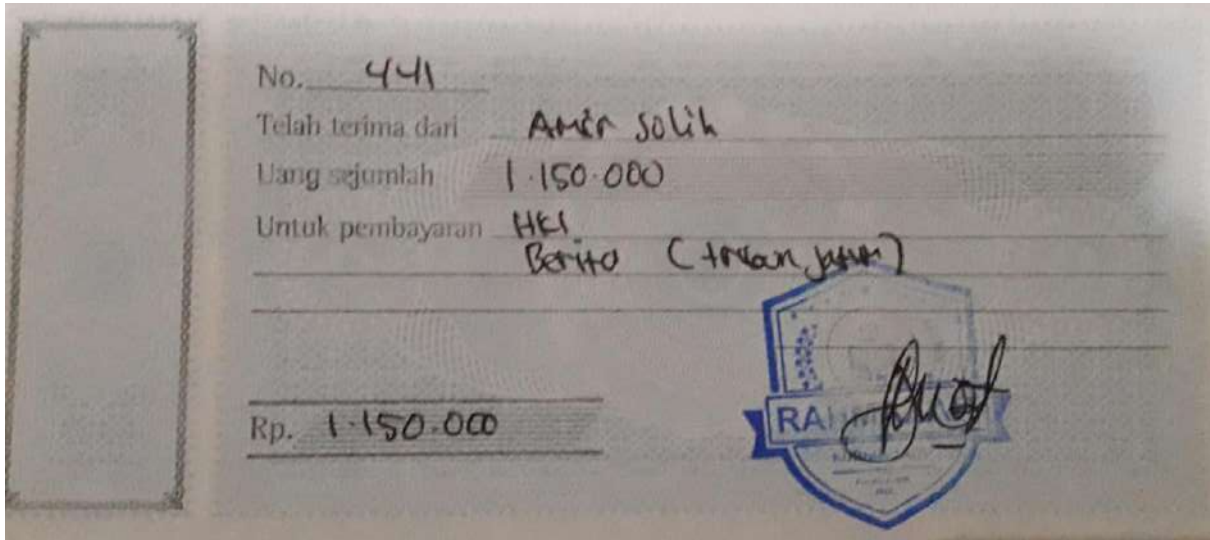 No. 441
Telah terima dari Amir Solih
Uang sejumlah 1.150.000
Untuk pembayaran HKI
Berita (
Rp. 1.150.000
RA